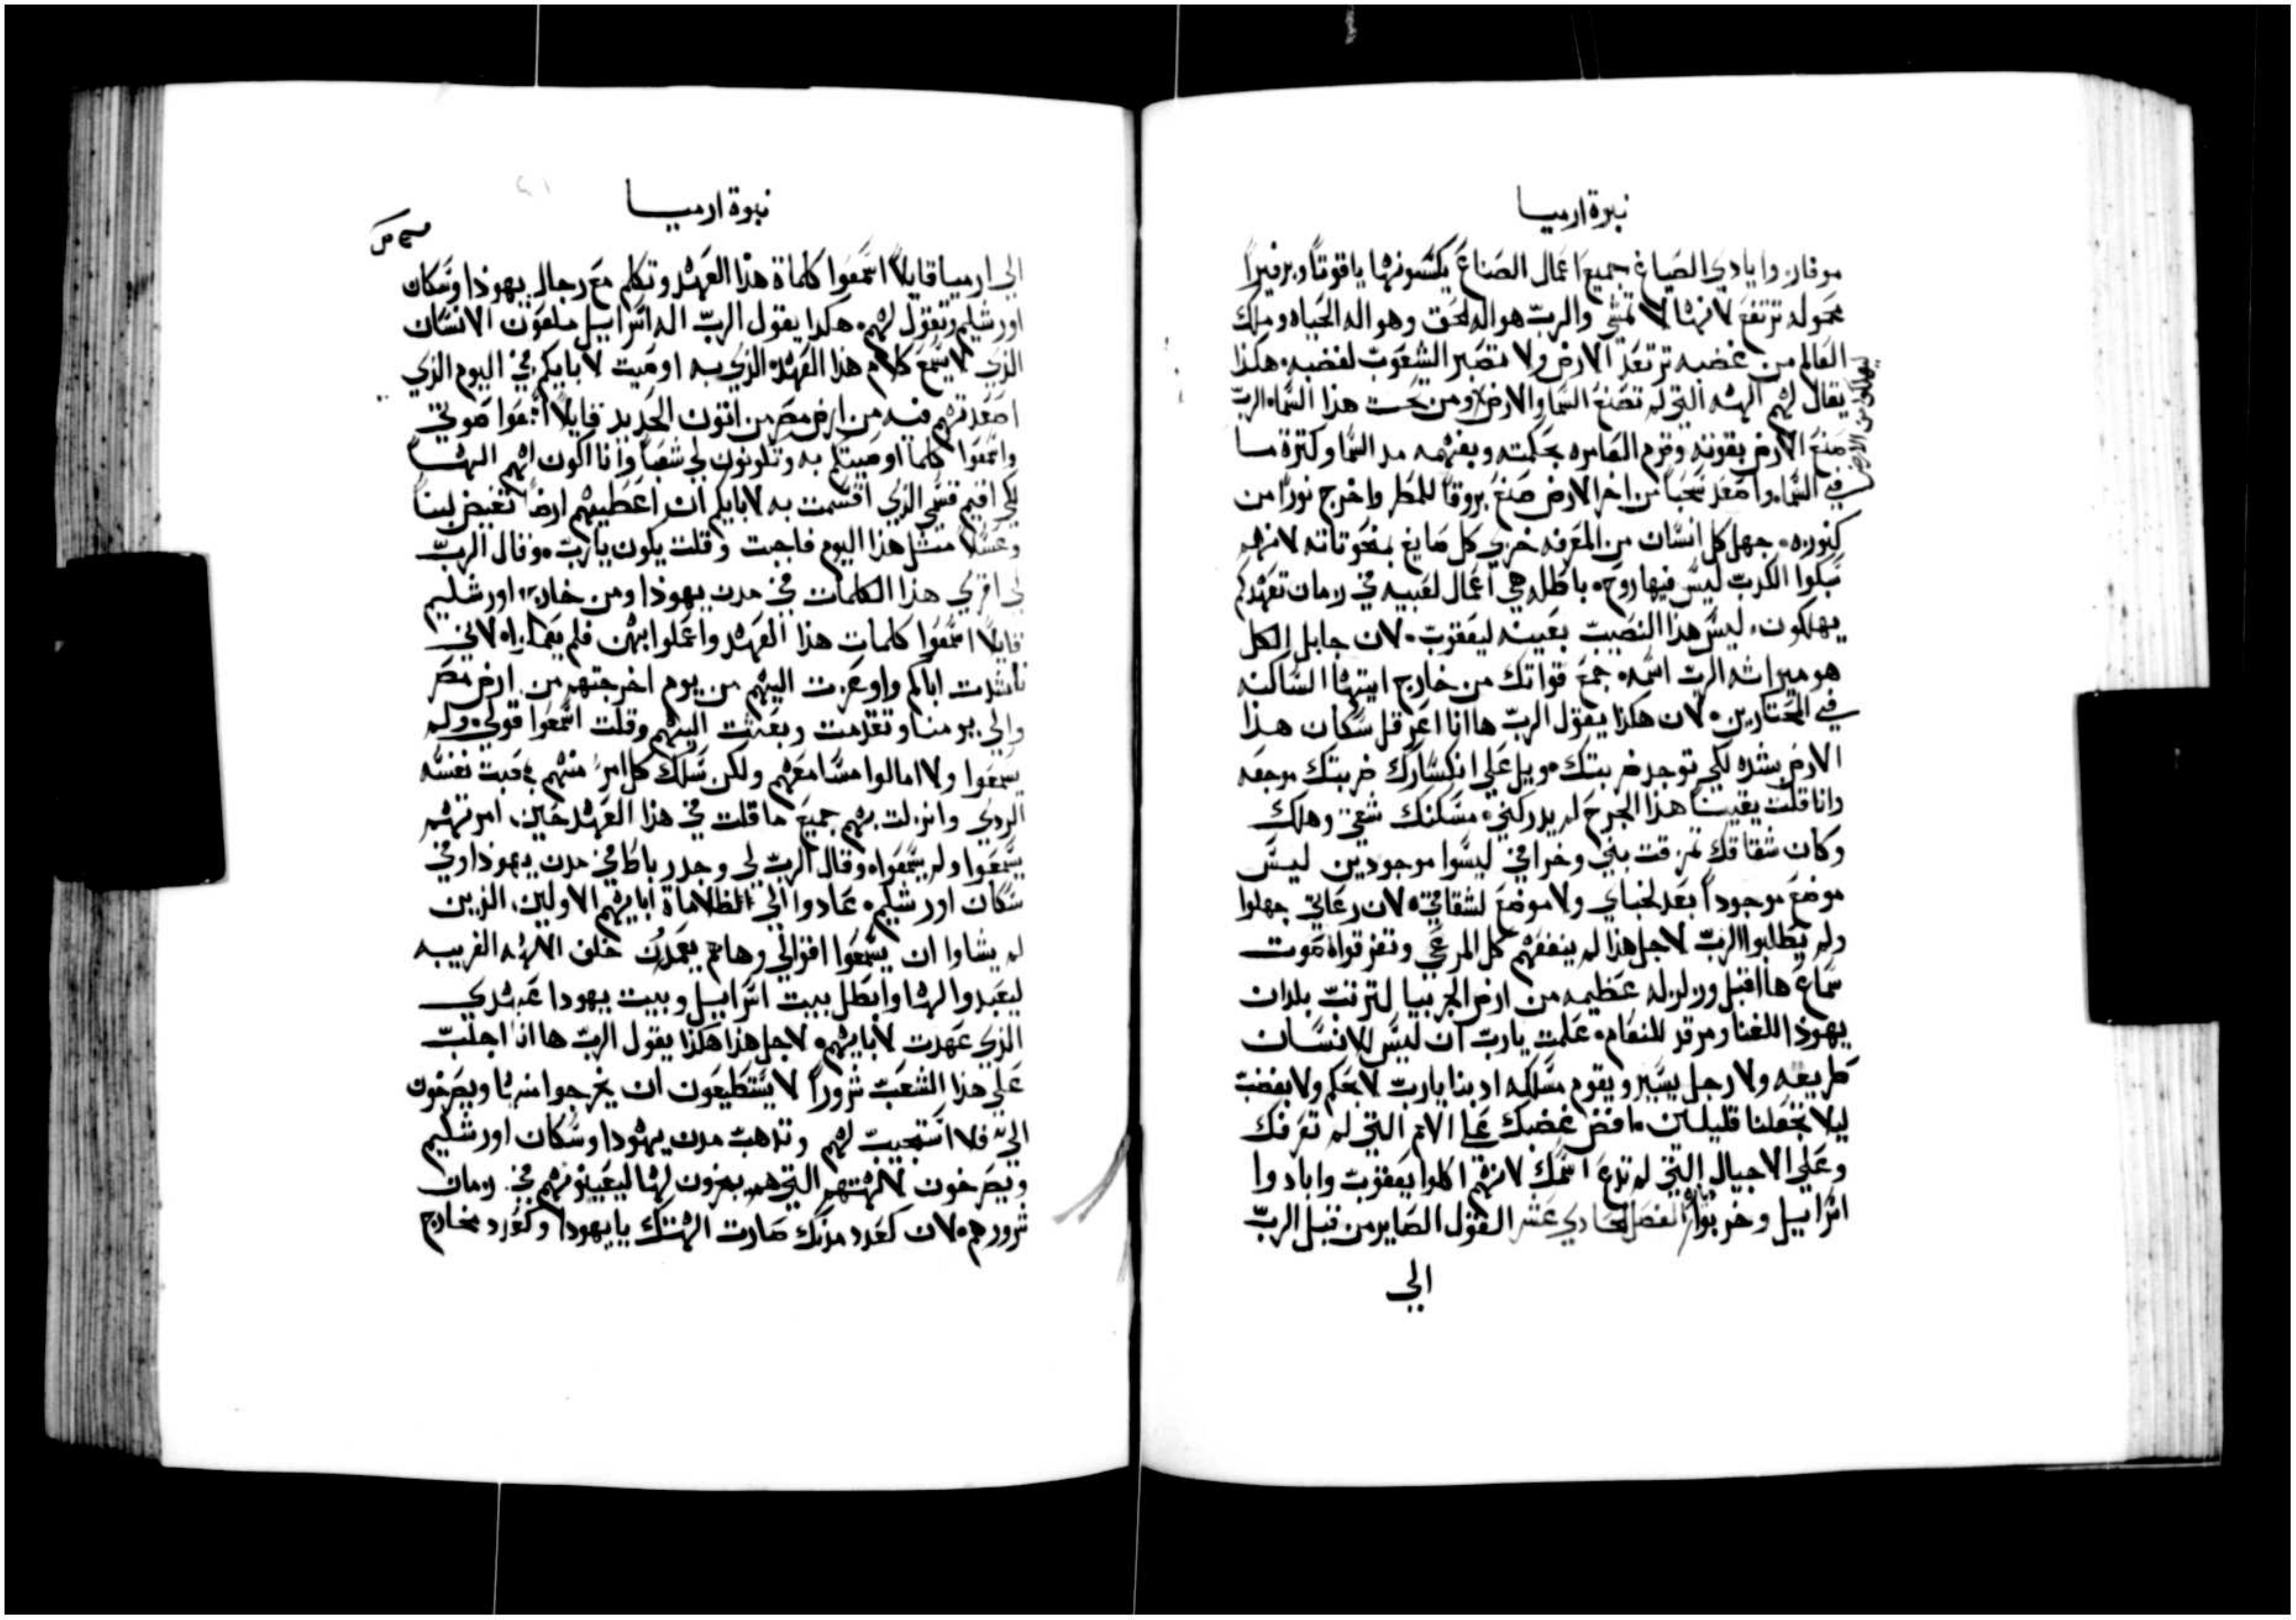 نبوة ارميا
موفار. وايادي الصياغ جميع اعمال الصناع يكسونها ياقوتاً وبرفيراً
محموله ترتفع لانها لا تمشي والرب هو اله الحق وهو اله الحياه وملك
العالم من غضبه ترتعد الارض ولا تصبر الشعوب لغضبه. هكذا
يقال لهم الهه التي لم تصنع السما والارض ومن تحت هذا السماء الرب
ليهلكوا من الارض
صنع الارض بقوته وقوم العامره بحكمته وبفهمه مد السما وكثرة ما
في السماء واصعد سحباً من اخر الارض صنع بروقاً للمطر واخرج نوراً من
كنوزه. جهل كل انسان من المعرفه خزي كل صايغ بمنحوتاته لانهم
سبكوا الكدب ليس فيها روح. باطله هي اعمال لعبيه في زمان تعهدكم
يهلكون. ليس هذا النصيب بعينه ليعقوب. لان جابل الكل
هو ميراثه الرب اسمه. جمع قواتك من خارج ايتها الساكنه
في المختارين. لان هكذا يقول الرب ها انا اعرقل سكان هذا
الارض بشده لكي توجد ضربتك. ويل علي انكسارك ضربتك موجعه
وانا قلت يقيناً هذا الجرح لم يدركني. مسكنك شقي وهلك
وكان شقاقك تمزقت بني وخرافي ليسوا موجودين ليس
موضع موجوداً بعد لخباي ولا موضع لشقاقي. لان رعاتي جهلوا
ولم يطلبوا الرب لاجل هذا لم ينفعهم كل المرعي وتفرقوا. صوت
سماع ها اقبل وزلزله عظيمه من ارض الجربيا لترتب بلدان
يهوذا للفنا ومرقد للنعام. علمت يارب ان ليس للانسان
طريقه ولا رجل يسير ويقوم مسلكه ادبنا يارب لا بحكم ولا بغضب
ليلا تجعلنا قليلين. افض غضبك علي الامم التي لم تعرفك
وعلي الاجيال التي لم تدع اسمك لانهم اكلوا يعقوب وابادوا
اسرائيل وخربوا. الفصل الحادي عشر القول الصاير من قبل الرب
الي
نبوة ارميا
الي ارميا قايلاً اسمعوا كلماة هذا العهد وتكلم مع رجال يهوذا وسكان
اورشليم وتقول لهم. هكدا يقول الرب اله اسرائيل ملعون الانسان
الذي لا يسمع كلام هذا العهد الذي به اوصيت لابايكم في اليوم الذي
اصعدتهم فيه من ارض مصر من اتون الحديد قايلاً اسمعوا صوتي
واسمعوا كلما اوصيتكم به وتكونون لي شعباً وانا اكون لهم الهاً
لكي اقيم قسمي الذي اقسمت به لابايكم ان اعطيهم ارضاً تفيض لبناً
وعسلاً مثل هذا اليوم فاجبت وقلت يكون يارب. وقال الرب
لي اقري هذا الكلمات في مدن يهوذا ومن خارج اورشليم
قايلاً اسمعوا كلمات هذا العهد واعملوا بهن فلم يعملوا. لاني
ناشدت اباكم واوعزت اليهم من يوم اخرجتهم من ارض مصر
والي يومنا وتقدمت وبعثت اليهم وقلت اسمعوا قولي. ولم
يسمعوا ولا امالوا مسامعهم ولكن سلك كل امرء منهم في قبت نفسه
الردي وانزلت بهم جميع ما قلت في هذا العهد حين امرتهم
يسمعوا ولم يسمعوا. وقال الرب لي وجد رباط في مدن يهوذا وفي
سكان اورشليم. عادوا الي ظلاماة ابايهم الاولين الذين
لم يشاوا ان يسمعوا اقوالي وها هم يعمدون خلف الالهه الغريبه
ليعبدوا لها وابطل بيت اسرائيل وبيت يهودا عهدي
الذي عهدت لابايهم. لاجل هذا هكذا يقول الرب ها انا اجلب
علي هذا الشعب شروراً لا يستطيعون ان يخرجوا منها ويصرخون
الي. فلا استجيب لهم وتذهب مدن يهودا وسكان اورشليم
ويصرخون لالهتهم التي هم يبخرون لها ليعينونهم في زمان
شرورهم. لان كعدد مدنك صارت الهتك يا يهودا وكعدد مخارج